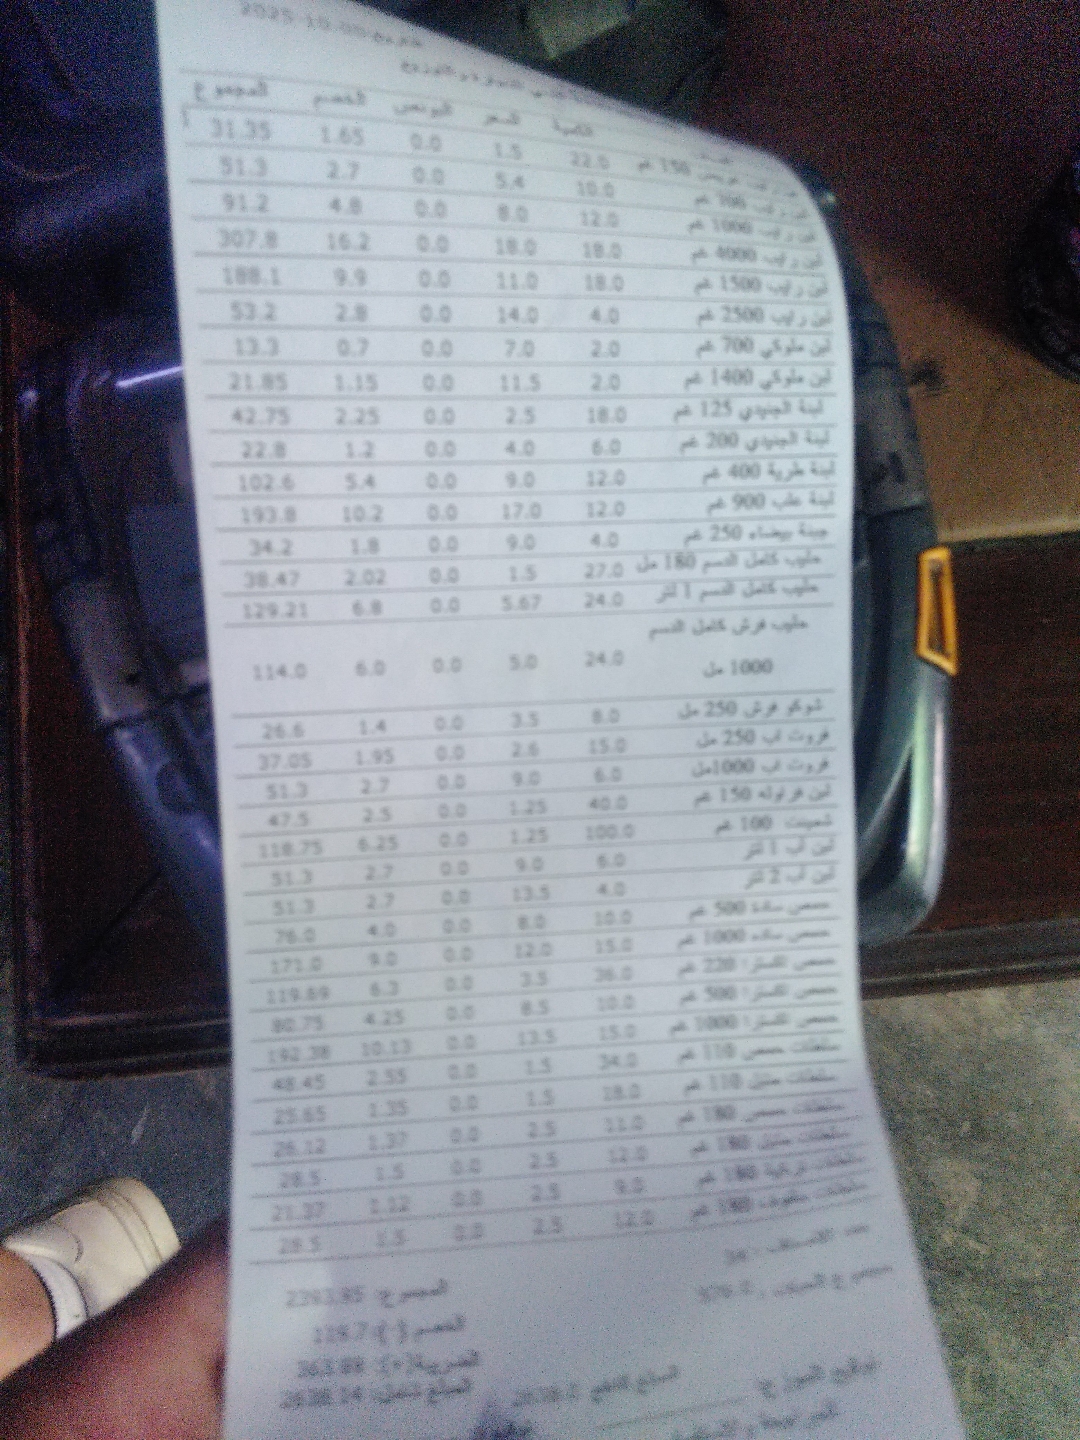 2025-10
المجموع الخصم البونص السعر الكمية
150 غم 22.0 1.5 0.0 1.65 31.35
لبن رايب 700 غم 10.0 5.4 0.0 2.7 51.3
لبن رايب 1000 غم 12.0 8.0 0.0 4.8 91.2
لبن رايب 4000 غم 18.0 18.0 0.0 16.2 307.8
لبن رايب 1500 غم 18.0 11.0 0.0 9.9 188.1
لبن رايب 2500 غم 4.0 14.0 0.0 2.8 53.2
لبن ملوكي 700 غم 2.0 7.0 0.0 0.7 13.3
لبن ملوكي 1400 غم 2.0 11.5 0.0 1.15 21.85
لبنة الجنيدي 125 غم 18.0 2.5 0.0 2.25 42.75
لبنة الجنيدي 200 غم 6.0 4.0 0.0 1.2 22.8
لبنة طرية 400 غم 12.0 9.0 0.0 5.4 102.6
لبنة علب 900 غم 12.0 17.0 0.0 10.2 193.8
جبنة بيضاء 250 غم 4.0 9.0 0.0 1.8 34.2
حليب كامل الدسم 180 مل 27.0 1.5 0.0 2.02 38.47
حليب كامل الدسم 1 لتر 24.0 5.67 0.0 6.8 129.21
حليب فرش كامل الدسم
1000 مل 24.0 5.0 0.0 6.0 114.0
شوكو فرش 250 مل 8.0 3.5 0.0 1.4 26.6
فروت اب 250 مل 15.0 2.6 0.0 1.95 37.05
فروت اب 1000مل 6.0 9.0 0.0 2.7 51.3
لبن فراوله 150 غم 40.0 1.25 0.0 2.5 47.5
شمينت 100 غم 100.0 1.25 0.0 6.25 118.75
لبن اب 1 لتر 6.0 9.0 0.0 2.7 51.3
لبن اب 2 لتر 4.0 13.5 0.0 2.7 51.3
حمص سادة 500 غم 10.0 8.0 0.0 4.0 76.0
حمص ساده 1000 غم 15.0 12.0 0.0 9.0 171.0
حمص اكسترا 220 غم 36.0 3.5 0.0 6.3 119.69
حمص اكسترا 500 غم 10.0 8.5 0.0 4.25 80.75
حمص اكسترا 1000 غم 15.0 13.5 0.0 10.13 192.38
سلطات حمص 110 غم 34.0 1.5 0.0 2.55 48.45
سلطات متبل 110 غم 18.0 1.5 0.0 1.35 25.65
سلطات حمص 180 غم 11.0 2.5 0.0 1.37 26.12
سلطات متبل 180 غم 12.0 2.5 0.0 1.5 28.5
سلطات تركية 180 غم 9.0 2.5 0.0 1.12 21.37
سلطات ملفوف 180 غم 12.0 2.5 0.0 1.5 28.5
عدد الاصناف : 34
المجموع:
الخصم(-):
الضريبة(+): 363.88
المبلغ شامل: 2638.14
توقيع الموزع: